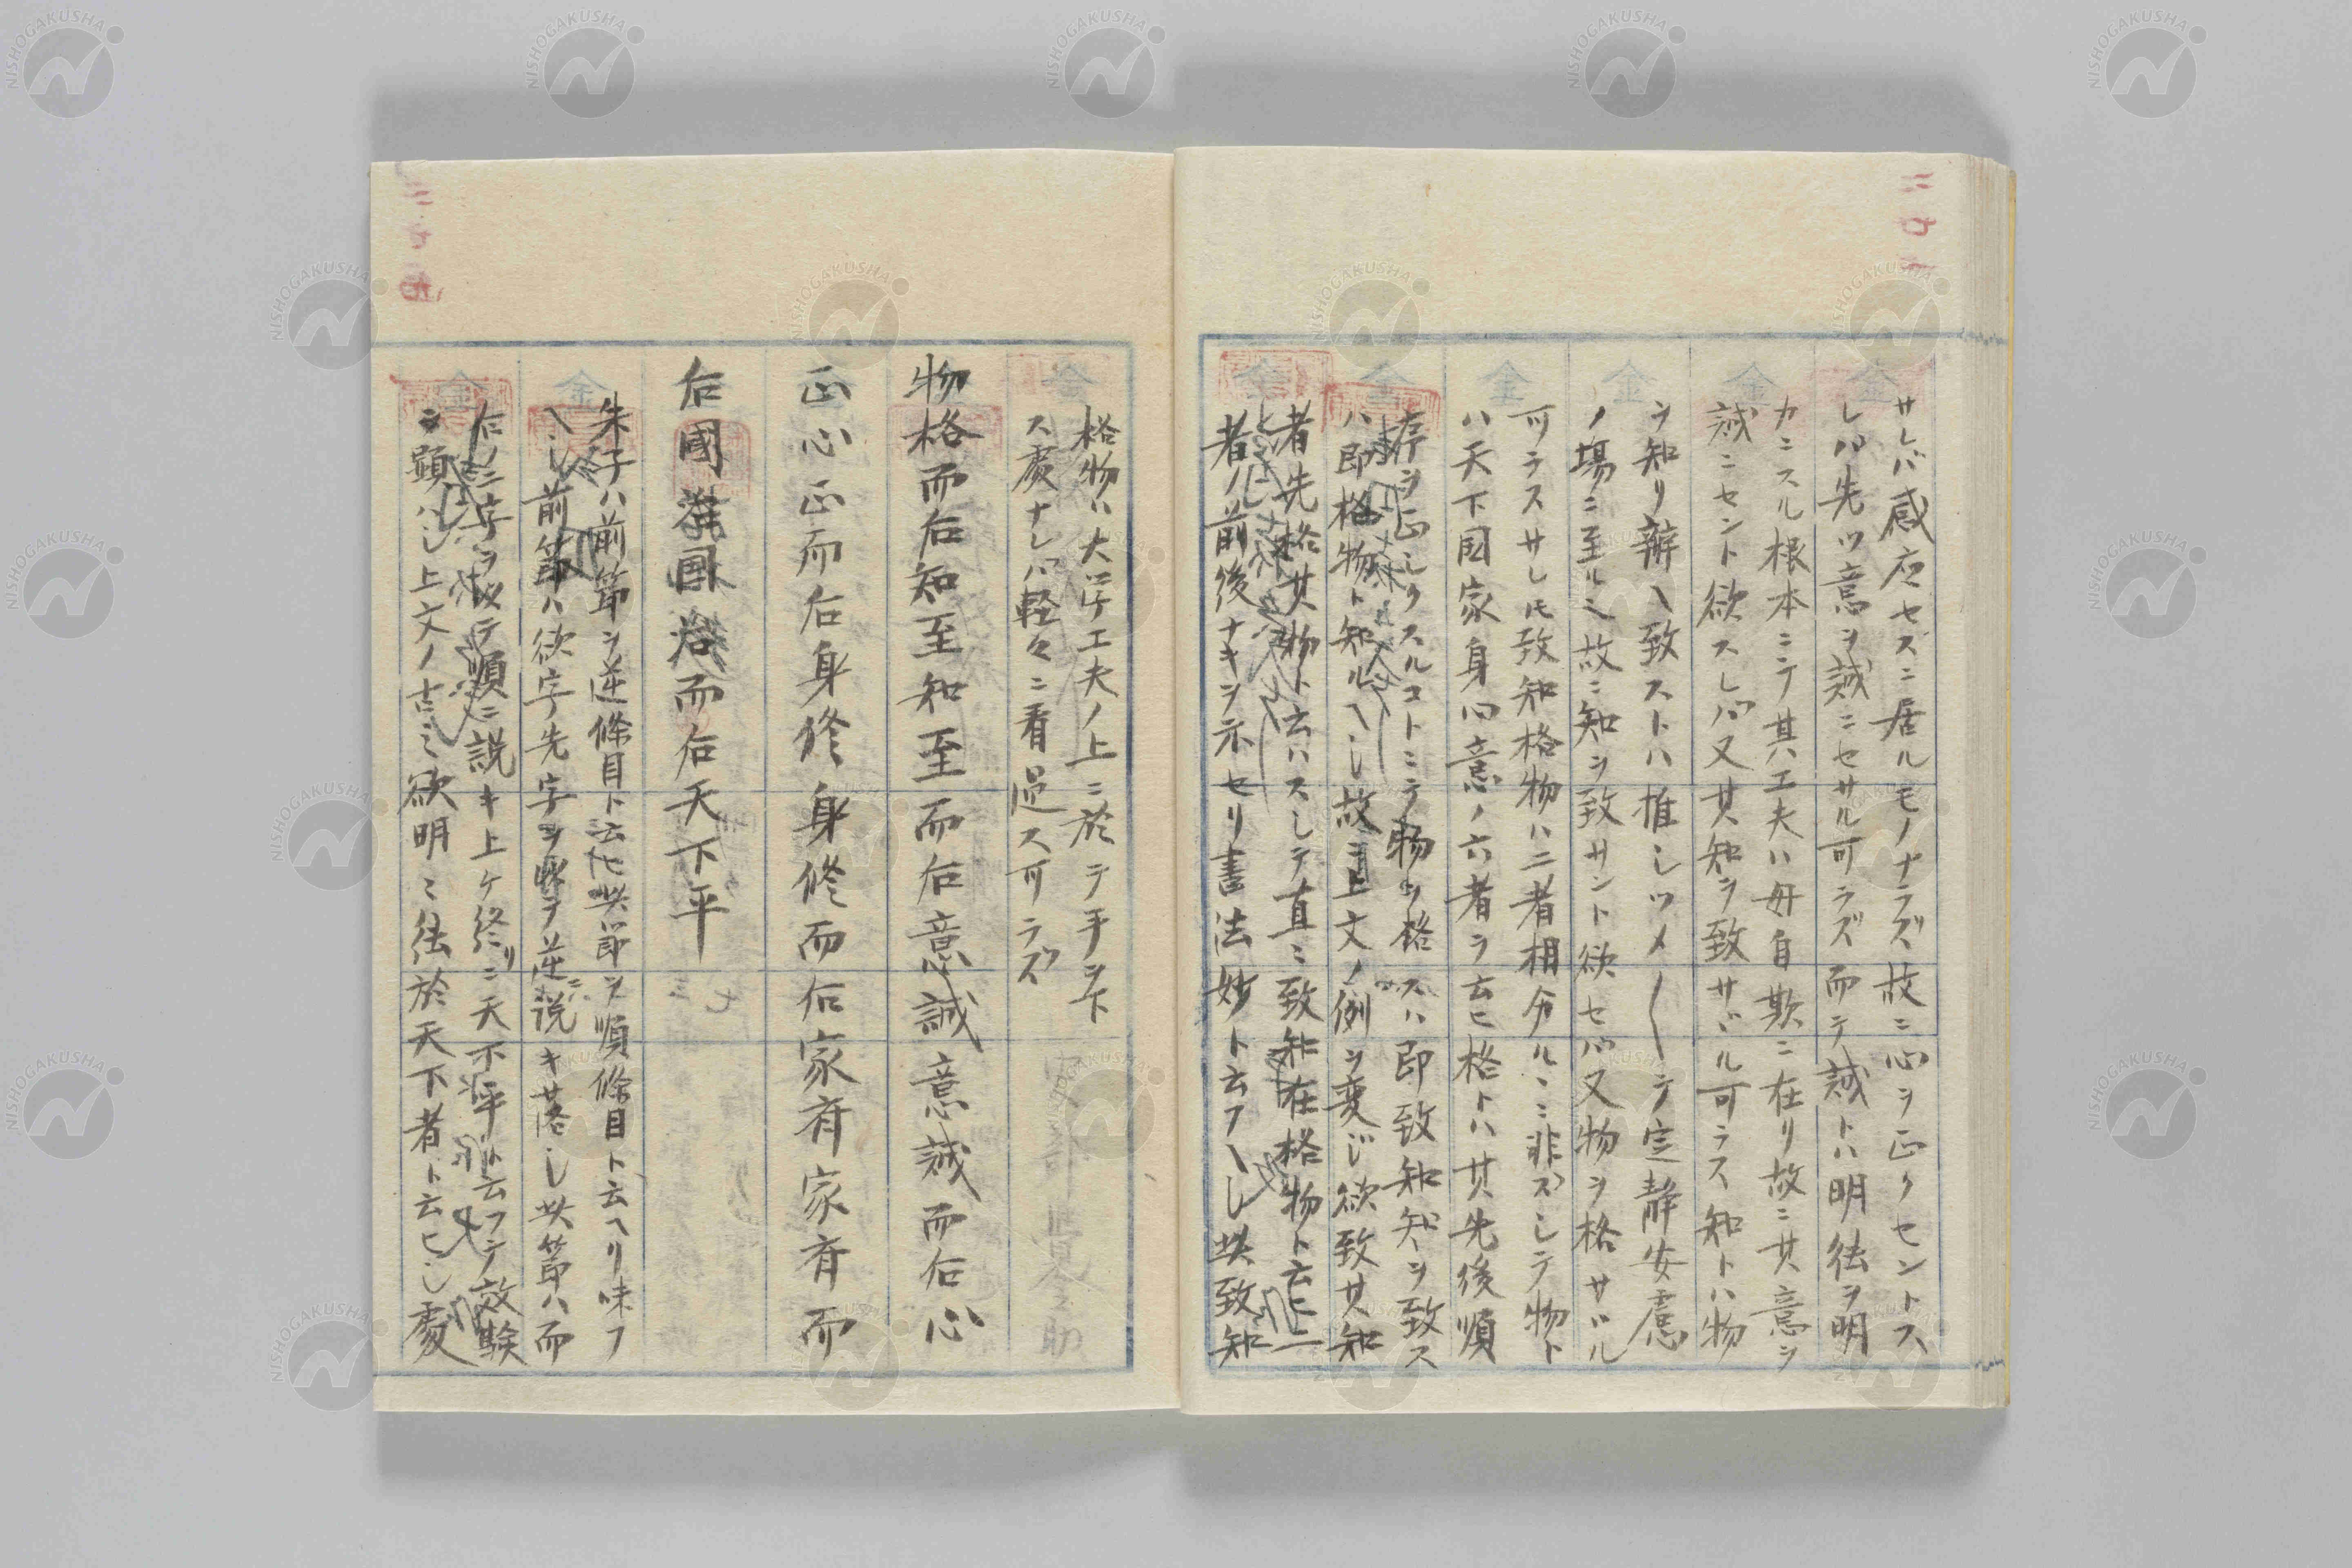 サレバ感應セズニ居ルモノナラズ故ニ心ヲ正クセントス
レバ先ツ意ヲ誠ニセサル可ラズ而テ誠トハ明徳ヲ明
カニスル根本ニテ其ハ工夫ハ毋自欺ニ在リ故ニ其意ヲ
誠ニセント欲スレバ又其知ヲ致サヾル可ラス知トハ物
ヲ知リ辨ヘ致ストハ推シツメ〱テ定静安慮
ノ場ニ至ルヘ故ニ知ヲ致サント欲セバ又物ヲ格サヾル
可ラスサレ𪜈致知格物ハ二者相分ルヽニ非ズシテ物ト
ハ天下国家身心意ノ六者ヲ云ヒ格トハ其先後順
序ヲ正シクスルコトニテ物ヲ格スハ即致知知ヲ致ス
ハ即格物ト知ルヘシ故ニ上文ノ例ヲ変ジ欲致其知
者先格其物ト云ハスシテ直ニ致知在格物ト云ヒ二
者ノ前後ナキヲ示セリ書法妙ト云フヘシ此致知
格物ハ大学工夫ノ上ニ於テ手ヲ下
ス處ナレバ軽々ニ看過ス可ラズ
物格而后知至知至而后意誠意誠而后心
正心正而后身修身修而后家斉家斉而
后國治国治而后天下平
朱子ハ前節ヲ逆條目ト云ヒ此節ヲ順條目ト云ヘリ味フ
ヘシ前節ハ欲字先字ヲ用テ逆ニ説キ落シ此節ハ而
后ノ二字ヲ以テ順ニ説キ上ケ終リニ天下平ト云フテ效験
ヲ顕ハシ上文ノ古之欲明明徳於天下者ト云ヒシ處
二七
NISHOGAKUSHA